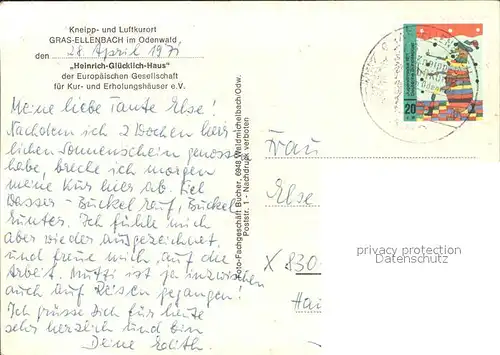 Kneipp- und Luftkurort
GRAS-ELLENBACH im Odenwald,
den 28. April 1971
„Heinrich-Glücklich-Haus"
der Europäischen Gesellschaft
für Kur- und Erholungshäuser e.V.
Meine liebe Tante Else!
Nachdem ich 2 Wochen herr
lichen Sonnenschein genossen
habe, breche ich morgen
meine Kur hier ab. Viel
Wasser - Buckel rauf, Buckel
runter. Ich fühle mich
aber wieder ausgezeichnet
und freue mich auf die
Arbeit. Mutti ist ja inzwischen
auch auf Reisen gegangen!
Ich grüsse Dich für heute
sehr herzlich und bin
Deine Edith.
Foto-Fachgeschäft Bucher, 6948 Waldmichelbach/Odw.
Poststr. 1 - Nachdruck verboten
20
Frau
Else
X 830
Hai
privacy protection
Datenschutz